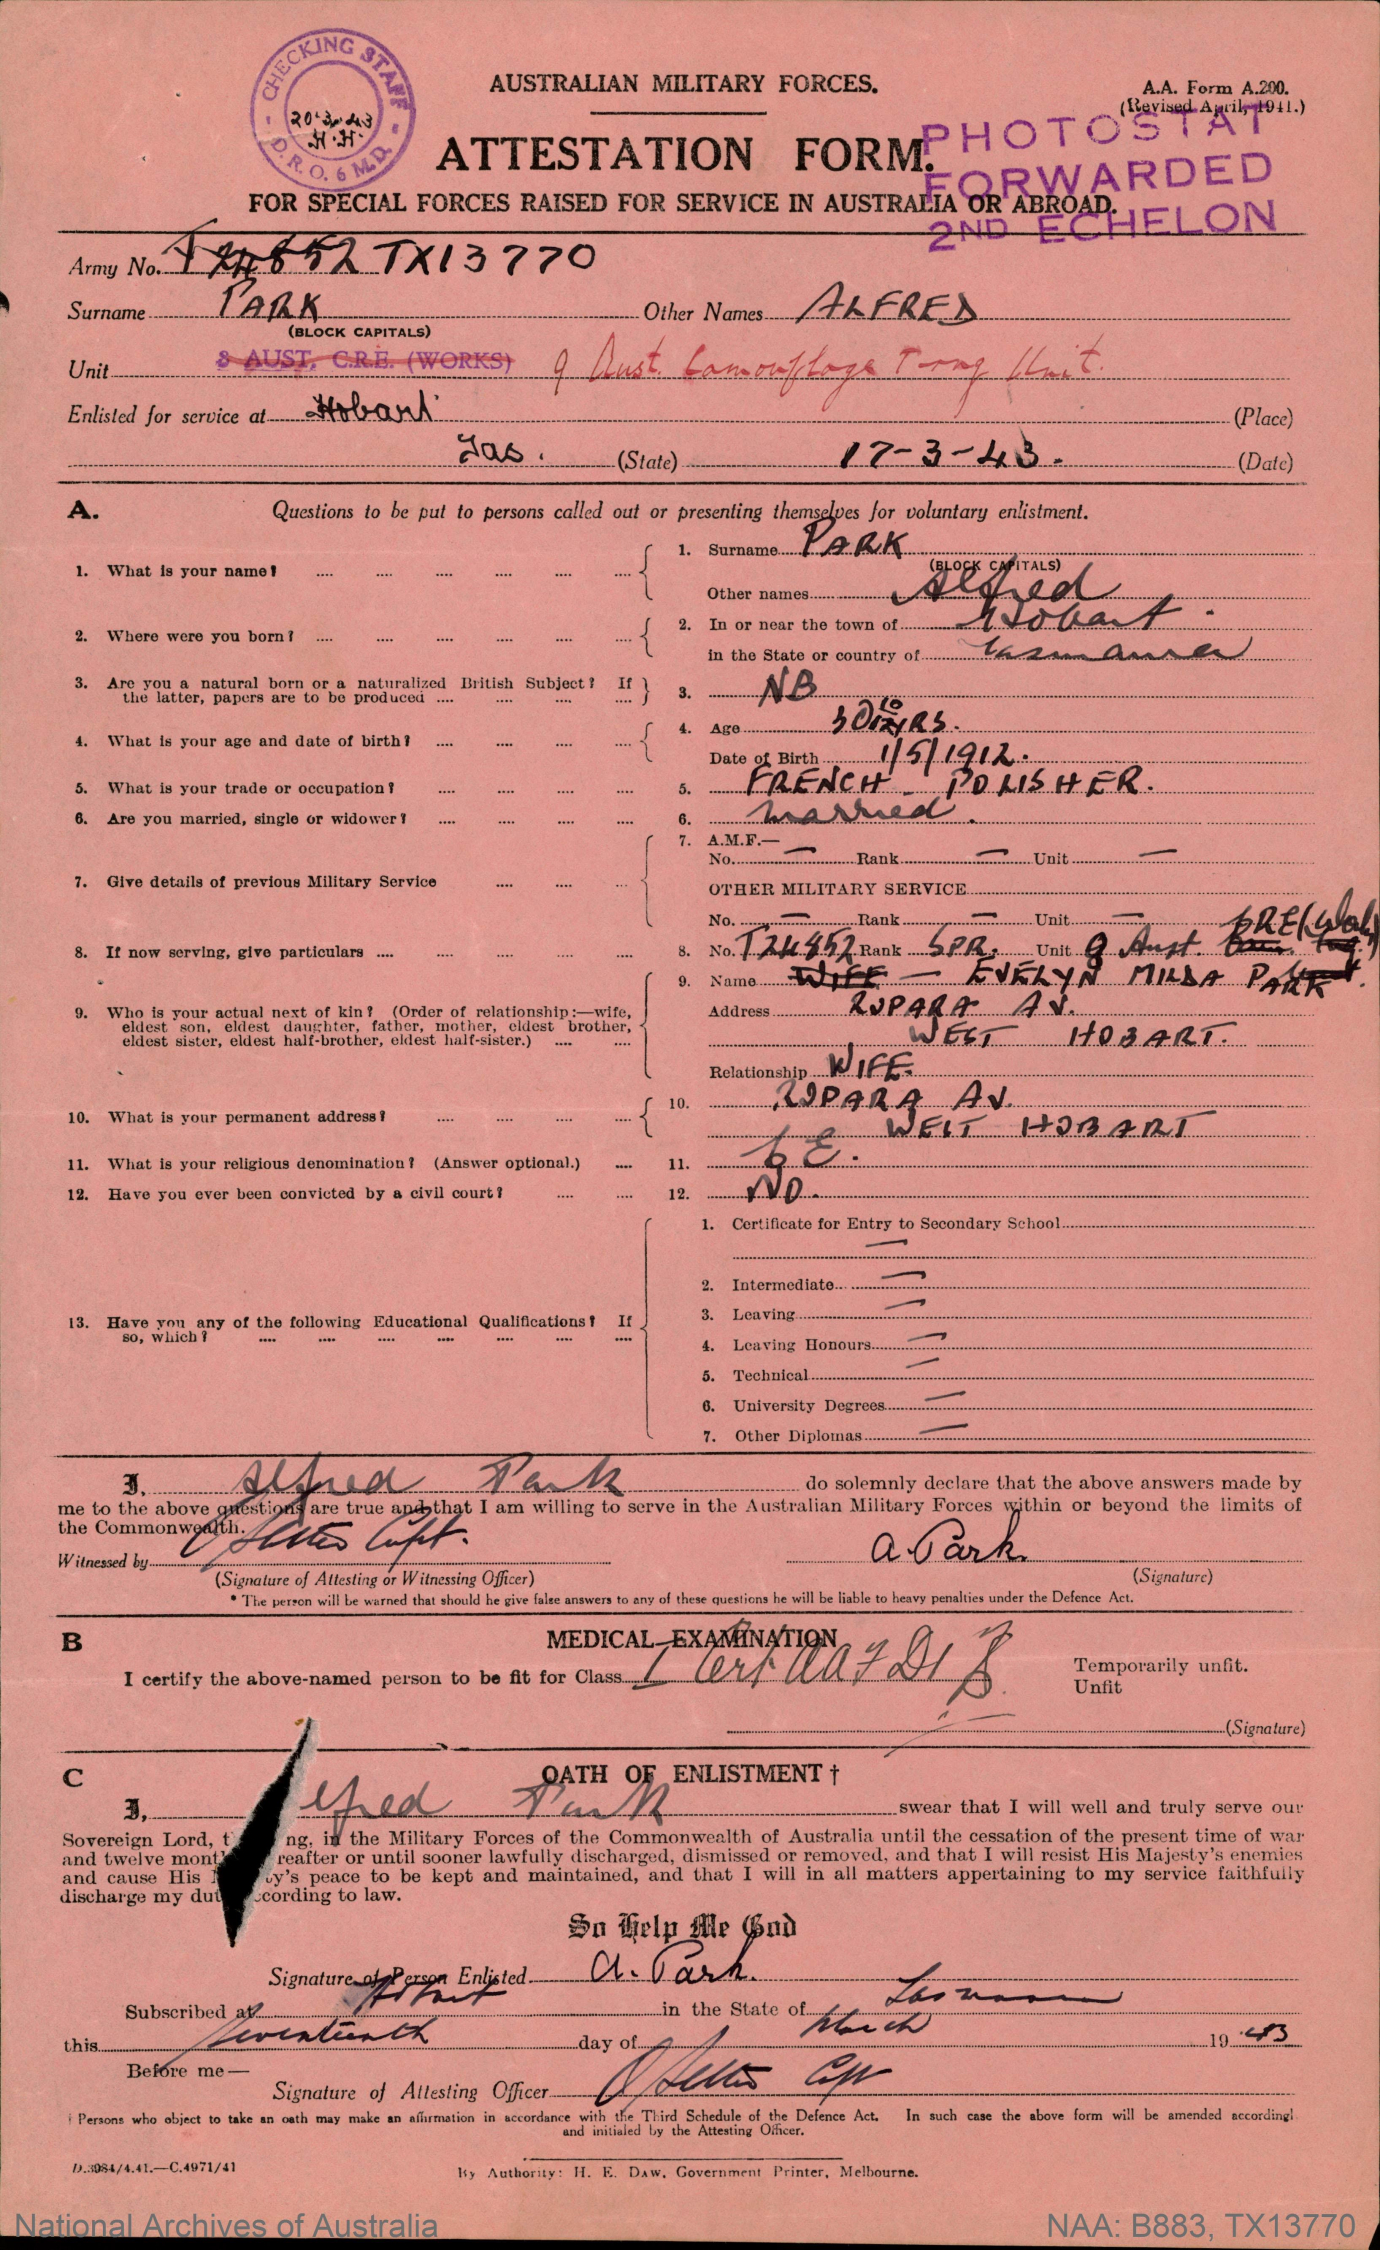 CHECKING STAFF
20.3.43
H.H.
D.R.O. 6 M.D.
AUSTRALIAN MILITARY FORCES.
A.A. Form A.200.
(Revised April, 1941.)
ATTESTATION FORM.
PHOTOSTAT
FORWARDED
2ND ECHELON
FOR SPECIAL FORCES RAISED FOR SERVICE IN AUSTRALIA OR ABROAD.
Army No. T24852 TX13770
Surname PARK Other Names ALFRED
(BLOCK CAPITALS)
Unit 8 AUST. C.R.E. (WORKS) 9 Aust. Camouflage Trng Unit.
Enlisted for service at Hobart (Place)
Tas. (State) 17-3-43. (Date)
A. Questions to be put to persons called out or presenting themselves for voluntary enlistment.
1. What is your name? 1. Surname PARK
(BLOCK CAPITALS)
Other names Alfred
2. Where were you born? 2. In or near the town of Hobart.
in the State or country of Tasmania
3. Are you a natural born or a naturalized British Subject? If
the latter, papers are to be produced 3. NB
4. What is your age and date of birth? 4. Age 30 10/12 YRS.
Date of Birth 1/5/1912.
5. What is your trade or occupation? 5. FRENCH - POLISHER.
6. Are you married, single or widower? 6. Married.
7. Give details of previous Military Service 7. A.M.F.—
No. — Rank — Unit —
OTHER MILITARY SERVICE
No. — Rank — Unit —
8. If now serving, give particulars 8. No. T24852 Rank SPR. Unit 9 Aust. CRE (Works)
9. Who is your actual next of kin? (Order of relationship:—wife,
eldest son, eldest daughter, father, mother, eldest brother,
eldest sister, eldest half-brother, eldest half-sister.)
9. Name WIFE — EVELYN MILDA PARK
Address RUPARA AV.
WEST HOBART.
Relationship WIFE.
10. What is your permanent address? 10. RUPARA AV.
WEST HOBART
11. What is your religious denomination? (Answer optional.) 11. C E.
12. Have you ever been convicted by a civil court? 12. NO.
13. Have you any of the following Educational Qualifications? If
so, which?
1. Certificate for Entry to Secondary School
—
2. Intermediate —
3. Leaving —
4. Leaving Honours —
5. Technical —
6. University Degrees —
7. Other Diplomas —
I, Alfred Park do solemnly declare that the above answers made by
me to the above questions are true and that I am willing to serve in the Australian Military Forces within or beyond the limits of
the Commonwealth.
Witnessed by Capt. A. Park.
(Signature of Attesting or Witnessing Officer) (Signature)
* The person will be warned that should he give false answers to any of these questions he will be liable to heavy penalties under the Defence Act.
B MEDICAL EXAMINATION
I certify the above-named person to be fit for Class I Temporarily unfit.
Unfit
(Signature)
C OATH OF ENLISTMENT †
I, lfred Park swear that I will well and truly serve our
Sovereign Lord, t ng, in the Military Forces of the Commonwealth of Australia until the cessation of the present time of war
and twelve mont reafter or until sooner lawfully discharged, dismissed or removed, and that I will resist His Majesty's enemies
and cause His y's peace to be kept and maintained, and that I will in all matters appertaining to my service faithfully
discharge my dut ccording to law.
So Help Me God
Signature of Person Enlisted A. Park.
Subscribed at Hobart in the State of Tasmania
this seventeenth day of March 1943
Before me—
Signature of Attesting Officer Capt
† Persons who object to take an oath may make an affirmation in accordance with the Third Schedule of the Defence Act. In such case the above form will be amended accordingl
and initialed by the Attesting Officer.
D.3984/4.41.—C.4971/41
By Authority: H. E. Daw, Government Printer, Melbourne.
National Archives of Australia NAA: B883, TX13770